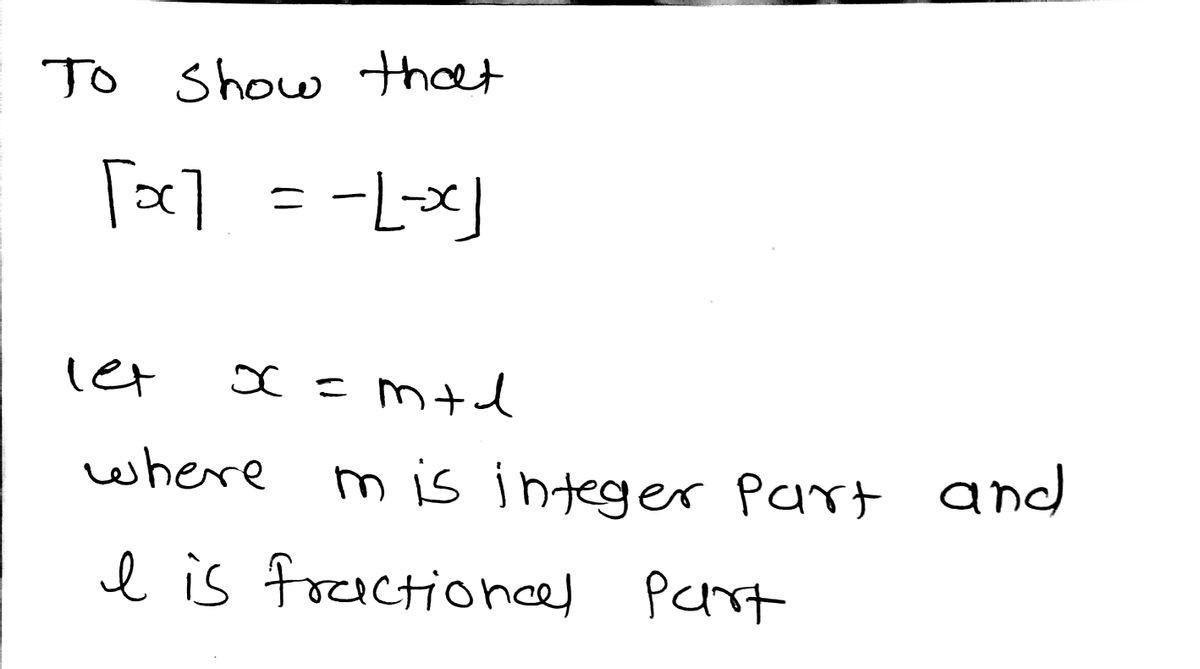 To show that
⌈x⌉ = -⌊-x⌋
let x = m+l
where m is integer part and
l is fractional part